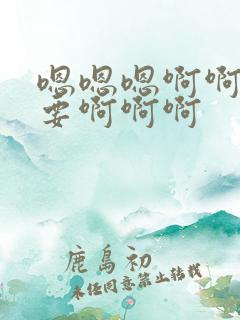 嗯嗯嗯啊啊
要啊啊啊
鹿岛初
未经同意禁止转载